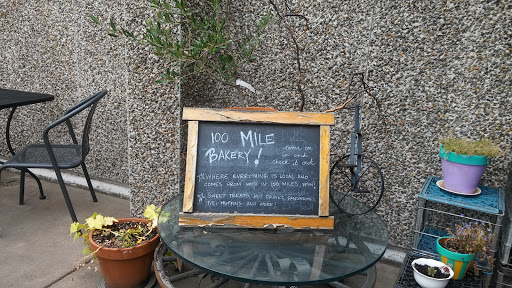 100 MILE
BAKERY!
come on
in and
check it out
WHERE EVERYTHING IS LOCAL AND
COMES FROM WITHIN 100 MILES, WOW!
SWEET TREATS, HOT DRINKS, SANDWICHES,
PIE, MUFFINS AND MORE!